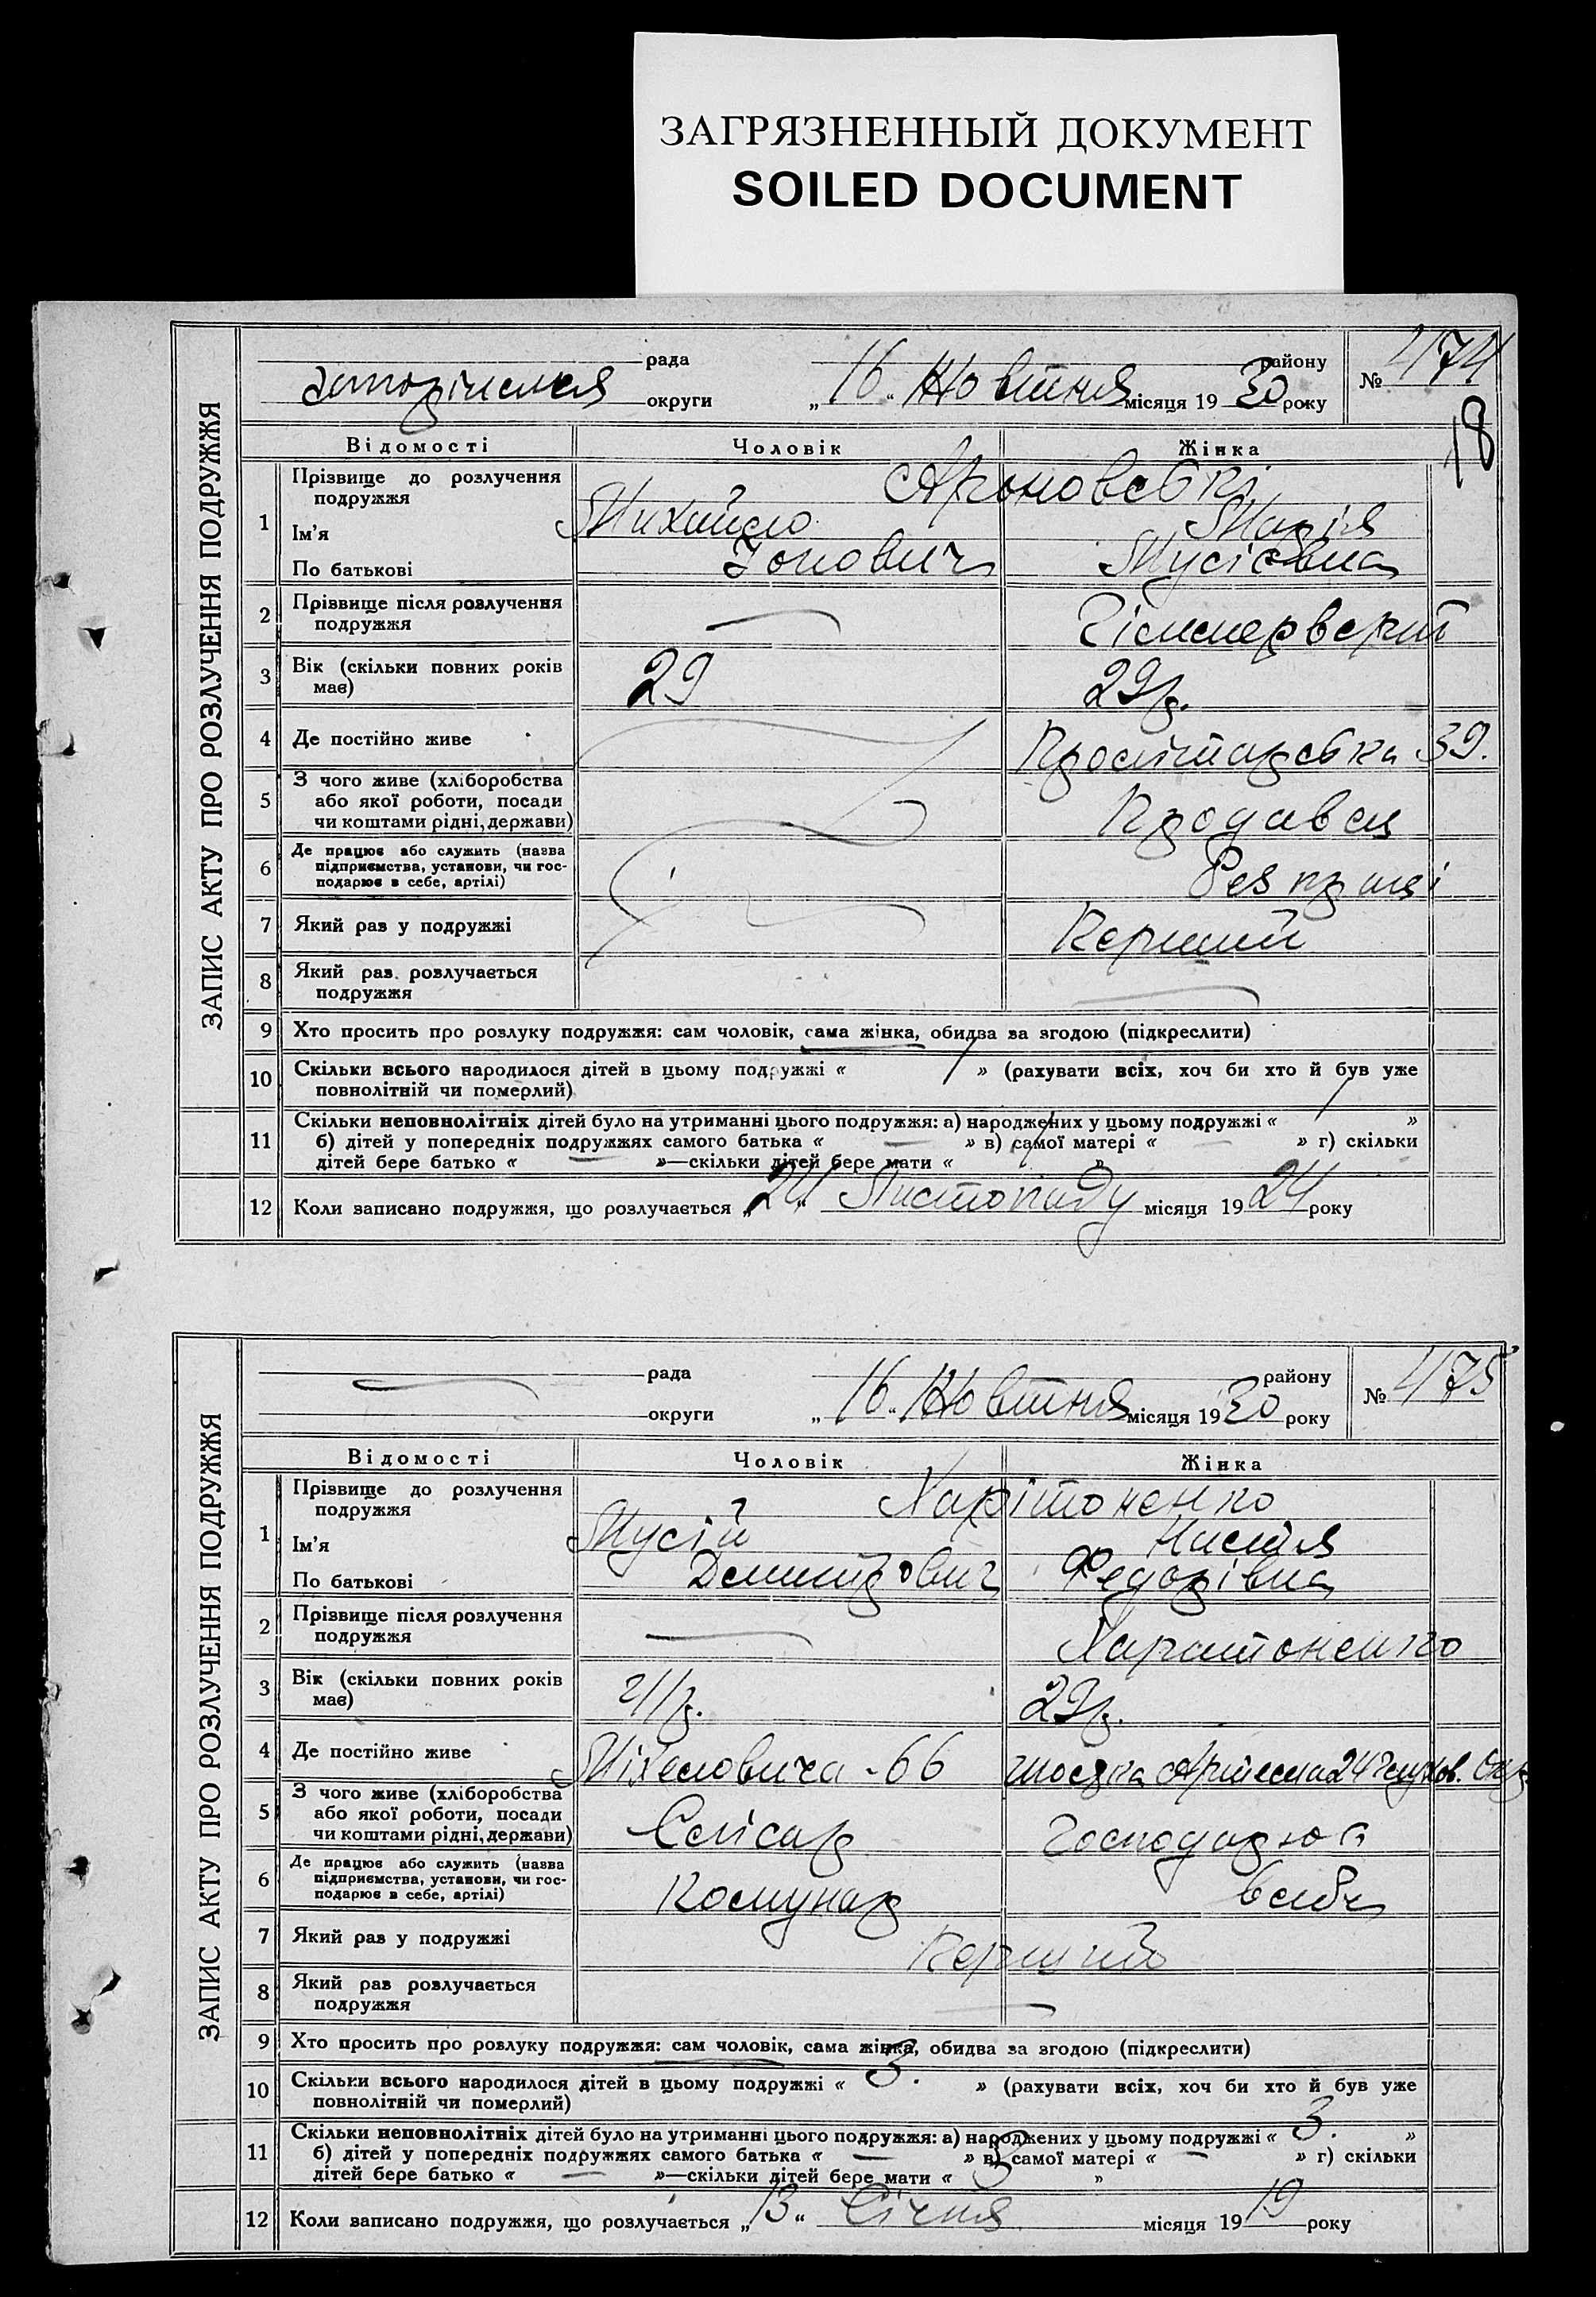 ЗАГРЯЗНЕННЫЙ ДОКУМЕНТ
SOILED DOCUMENT
ЗАПИС АКТУ ПРО РОЗЛУЧЕННЯ ПОДРУЖЖЯ
рада району
округи „16“ Жовтня місяця 1930 року
№ 474
18
Відомості Чоловік Жінка
1 Прізвище до розлучення подружжя
Ароновські
Ім'я Михайло Марія
По батькові Мусіївна
2 Прізвище після розлучення
подружжя
3 Вік (скільки повних років 29 29 р.
має)
4 Де постійно живе Пролітарська 39.
5 З чого живе (хліборобства
або якої роботи, посади
чи коштами рідні, держави) Продавец
6 Де працює або служить (назва
підприємства, установи, чи гос-
подарює в себе, артілі)
7 Який раз у подружжі Перший
8 Який раз розлучається
подружжя
9 Хто просить про розлуку подружжя: сам чоловік, сама жінка, обидва за згодою (підкреслити)
10 Скільки всього народилося дітей в цьому подружжі « 1 » (рахувати всіх, хоч би хто й був уже
повнолітній чи померлий)
11 Скільки неповнолітніх дітей було на утриманні цього подружжя: а) народжених у цьому подружжі « 1 »
б) дітей у попередніх подружжях самого батька « — » в) самої матері « — » г) скільки
дітей бере батько « — »—скільки дітей бере мати « 1 »
12 Коли записано подружжя, що розлучається „24“ Листопаду місяця 1924 року
ЗАПИС АКТУ ПРО РОЗЛУЧЕННЯ ПОДРУЖЖЯ
рада району
округи „16“ Жовтня місяця 1930 року
№ 475
Відомості Чоловік Жінка
1 Прізвище до розлучення
подружжя Харітоненко
Ім'я Мусій Настя
По батькові Демидович Федорівна
2 Прізвище після розлучення
подружжя Харитоненко
3 Вік (скільки повних років 41 р. 29 р.
має)
4 Де постійно живе Міхеловича - 66
5 З чого живе (хліборобства
або якої роботи, посади
чи коштами рідні, держави) Слісар Господарює
6 Де працює або служить (назва
підприємства, установи, чи гос-
подарює в себе, артілі) Комунар в себе
7 Який раз у подружжі Перший
8 Який раз розлучається
подружжя
9 Хто просить про розлуку подружжя: сам чоловік, сама жінка, обидва за згодою (підкреслити)
10 Скільки всього народилося дітей в цьому подружжі « 3. » (рахувати всіх, хоч би хто й був уже
повнолітній чи померлий)
11 Скільки неповнолітніх дітей було на утриманні цього подружжя: а) народжених у цьому подружжі « 3. »
б) дітей у попередніх подружжях самого батька « — » в) самої матері « — » г) скільки
дітей бере батько « — »—скільки дітей бере мати « 3 »
12 Коли записано подружжя, що розлучається „13“ Січня місяця 1919 року